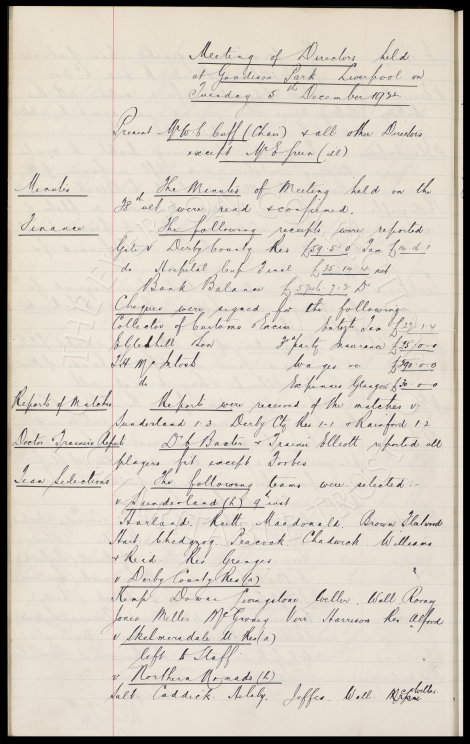 Meeting of Directors held
at Goodison Park Liverpool on
Tuesday 5th December 19
Present Mr W C Cuff (Chair) & all other Directors
except Mr E Green (ill)
Minutes
The Minutes of Meeting held on the
28th ult were read & confirmed.
Finance
The following receipts were reported
Gate v Derby County Res £59.5.0 Tax £14.16.1
do Hospital Cup Final £35.14.4 net
Bank Balance £5746.7.2 D
Cheques were signed for the following
Collector of Customs & Excise Entertt Tax £27.1.4
& Son 3rd party Insurance £25.0.0
T H McIntosh Wages &c £390.0.0
do Expenses Glasgow £30.0.0
Reports of Matches
Report were received of the matches v
Sunderland 1-3 Derby Cty Res 1-1 & Rainford 1-2
Doctor & Trainers Report
Dr Baxter & Trainer Elliott reported all
players fit except Forbes
Team Selections
The following teams were selected :-
v Sunderland (h) 9th inst
Harland. Raitt Macdonald. Brown
Hart Chedgzoy Peacock Chadwick Williams
& Reid Res Grenyer.
v Derby County Res (a)
Kemp Downs Livingstone. Weller. Wall Rooney
Jones Miller McGroary Virr Harrison Res Alford
v Skelmersdale U Res (a)
left to Staff
v Northern Nomads (h)
Salt. Caddick. Jeffs. Wall.